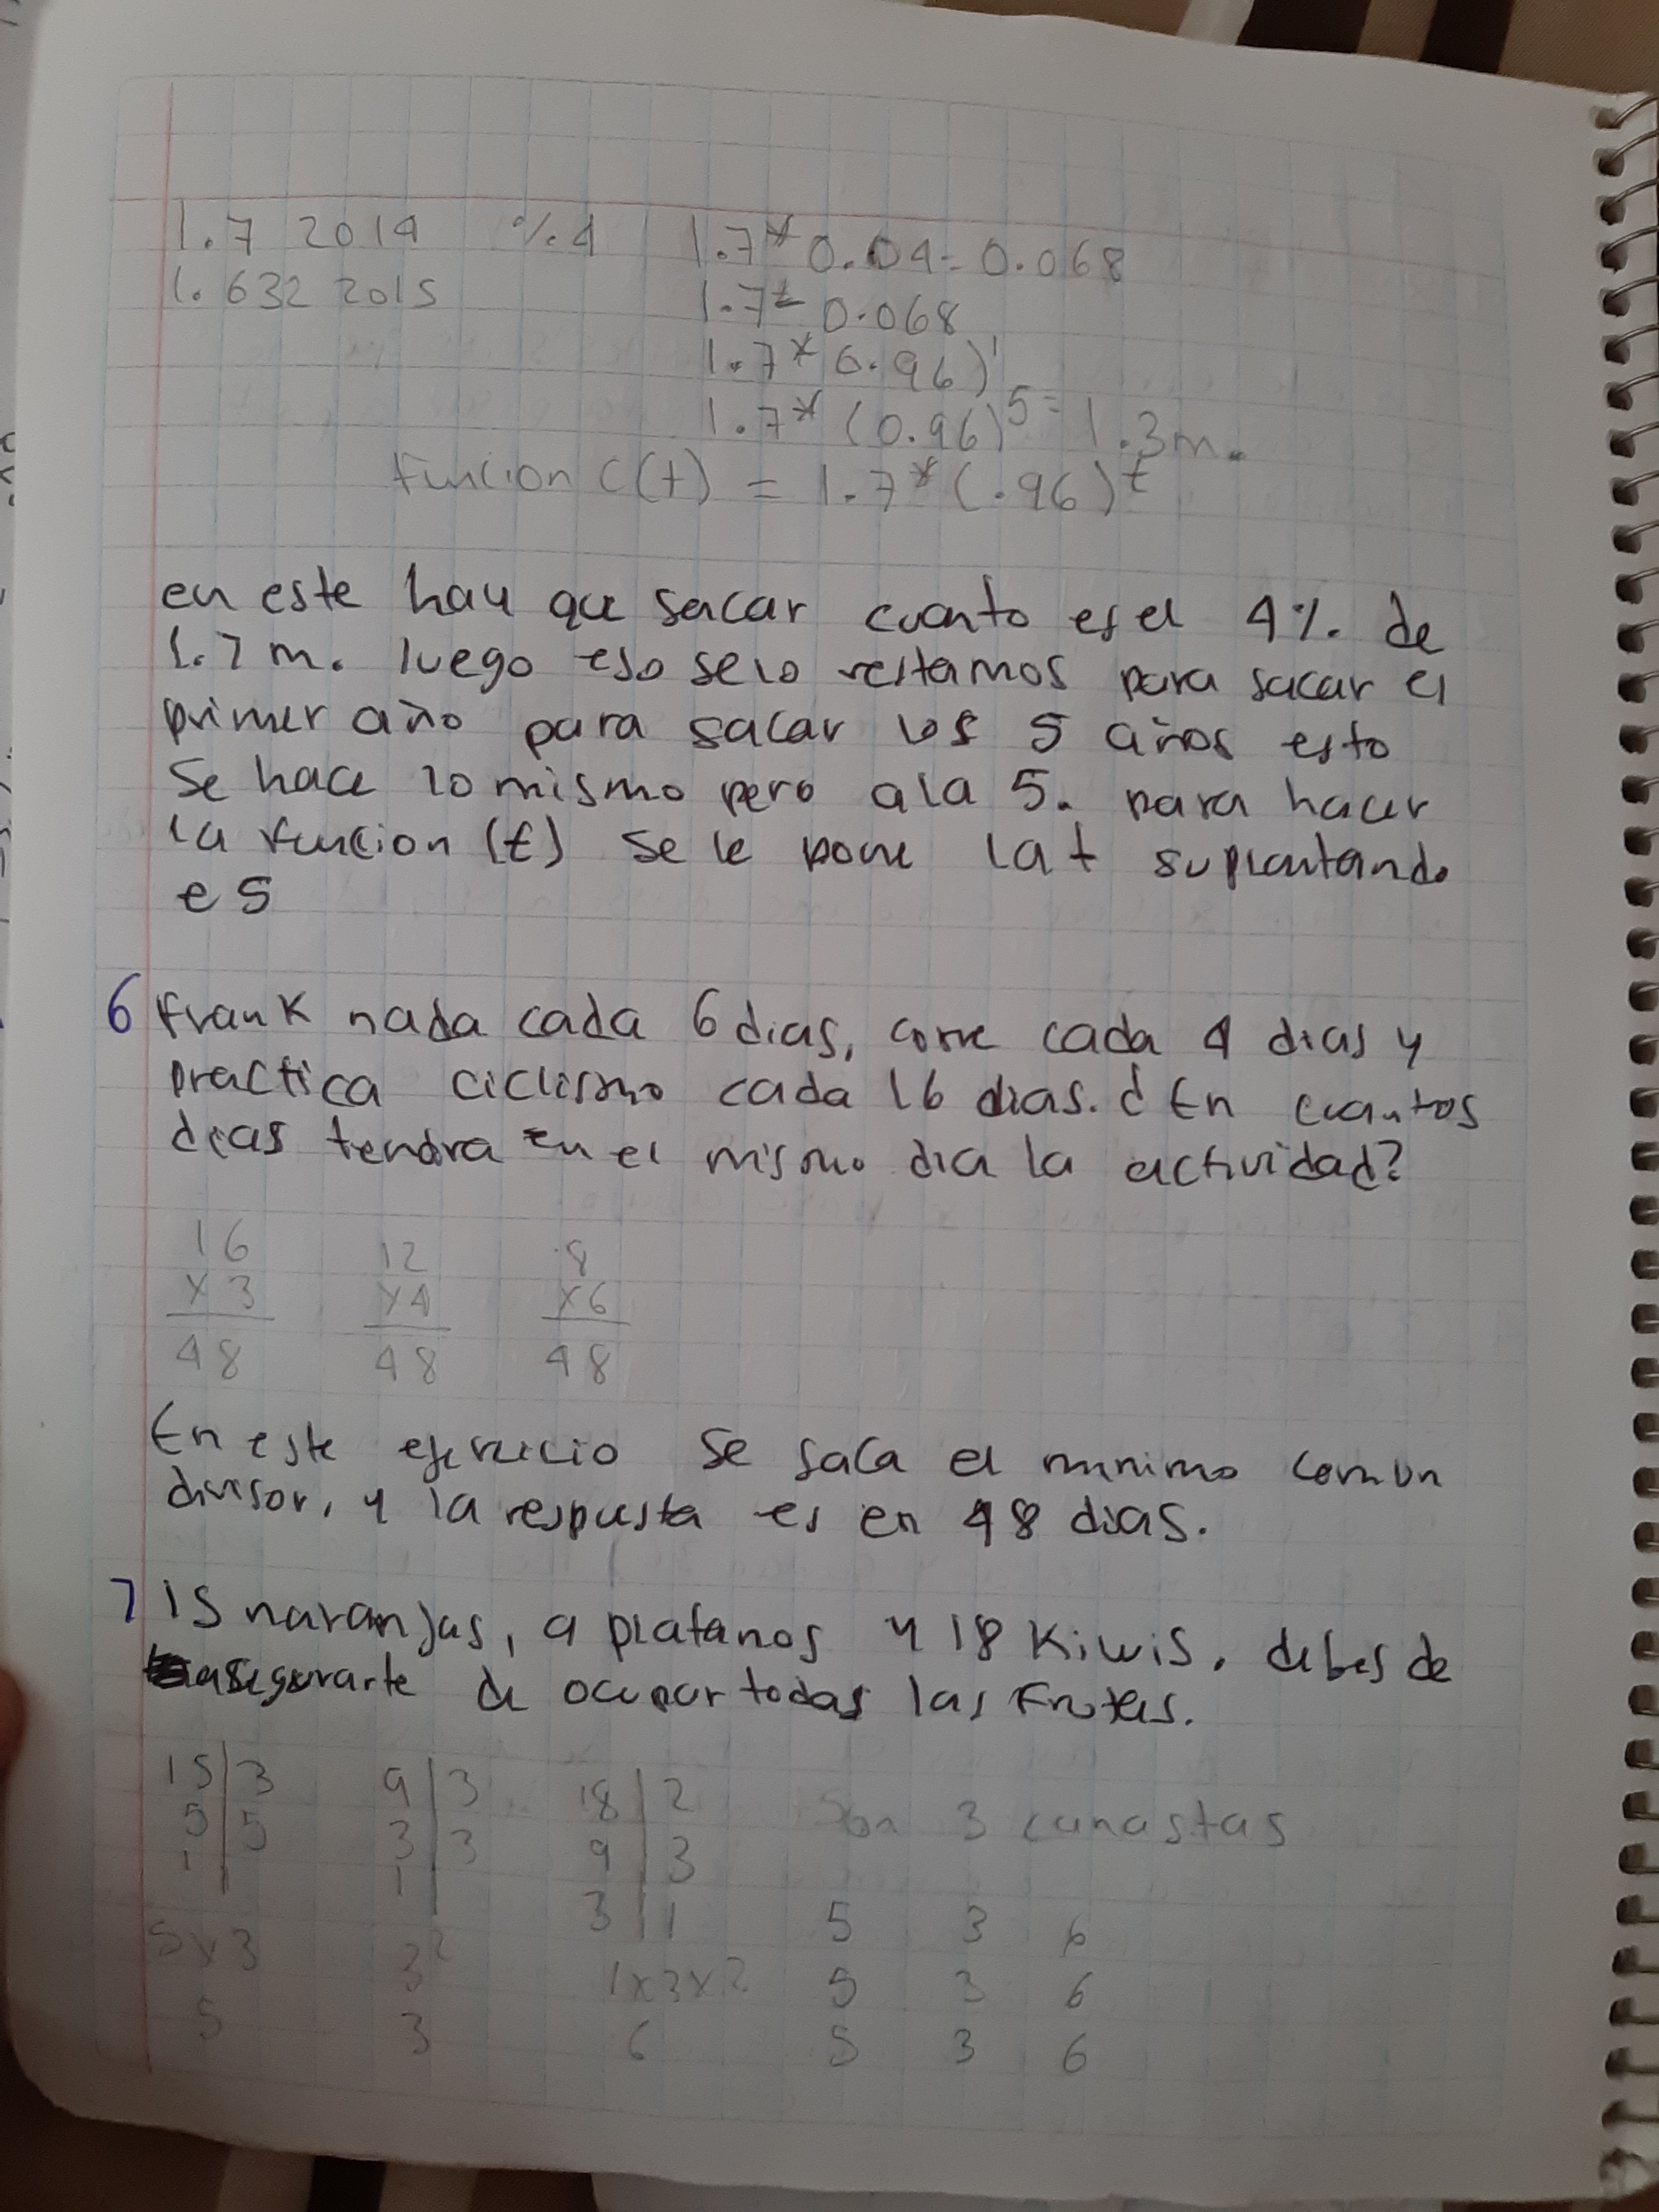 1.7 2014 %4 1.7*0.04=0.068
1.632 2015 1.7-0.068
1.7*0.96)¹
1.7*(0.96)⁵=1.3m.
Funcion C(t) = 1.7*(.96)ᵗ
en este hay que sacar cuanto es el 4% de
1.7 m. luego eso selo restamos para sacar el
primer año para sacar los 5 años esto
se hace lo mismo pero ala 5. para hacer
la funcion (t) se le pone la t suplantando
e 5
6 Frank nada cada 6 dias, corre cada 4 dias y
practica ciclismo cada 16 dias. ¿En cuantos
dias tendra en el mismo dia la actividad?
16 12 8
x3 x4 x6
48 48 48
En este ejercicio se saca el minimo comun
divisor, y la respuesta es en 48 dias.
7 15 naranjas, 9 platanos y 18 Kiwis. debes de
asegurarte de ocupar todas las Frutas.
15|3 9|3 18|2 Son 3 canastas
5|5 3|3 9|3
1| 1| 3|1 5 3 6
5x3 3² 1x3x2 5 3 6
5 3 6 5 3 6